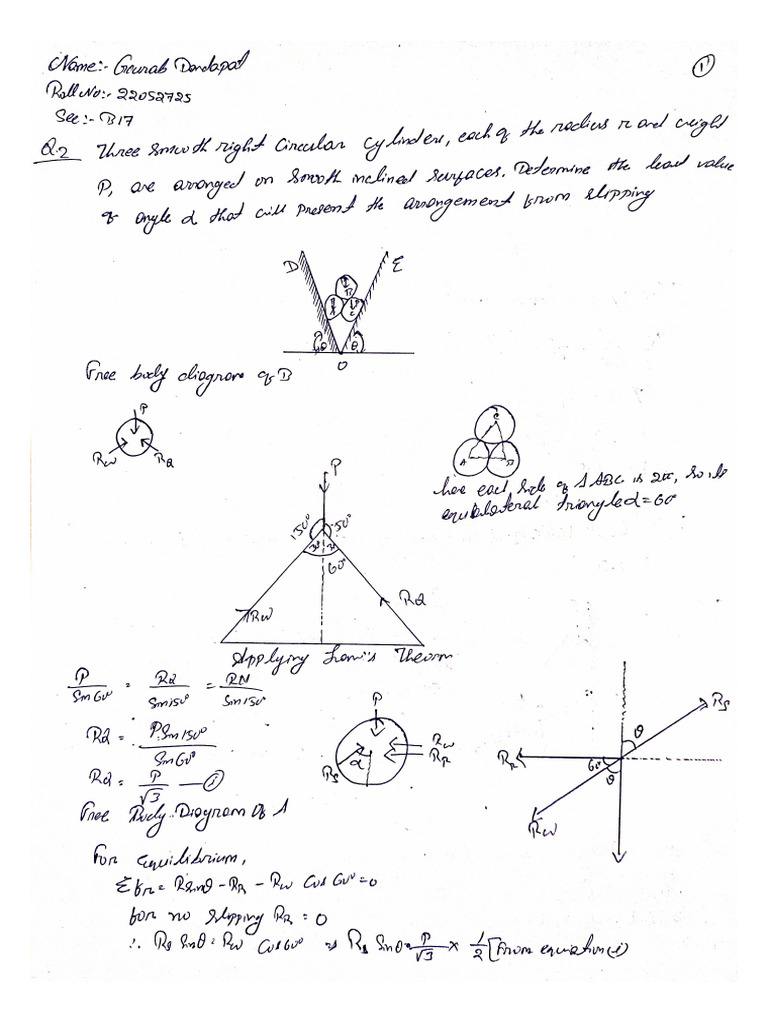 Name:- Gourab Dandapat
1
Roll No:- 22052725
Sec:- B17
Q.2 Three smooth right circular cylinders, each of the radius r and weight
P, are arranged on smooth inclined surfaces. Determine the least value
of angle α that will present the arrangement from slipping
D E
B
A C
θ θ
O
Free body diagram of B
P
RW RQ
C
A B
here each side of Δ ABC is 2r, so, its
equilateral triangle α = 60°
P
150° 150°
30° 30
60°
RW RQ
Applying Lami's Theorm
P/Sin60° = RQ/Sin150° = RN/Sin150°
RQ = P Sin150°/Sin60°
RQ = P/√3 — (i)
Free Body Diagram Of A
P
RW
RR
RS α
RS
θ
RR 60° θ
RW
For equilibrium,
Σfx = Rsinθ - RR - RW Cos 60° = 0
for no slipping RR = 0
∴ RS Sinθ = RW Cos60° ⇒ RS Sinθ = P/√3 × 1/2 [From equation (i)